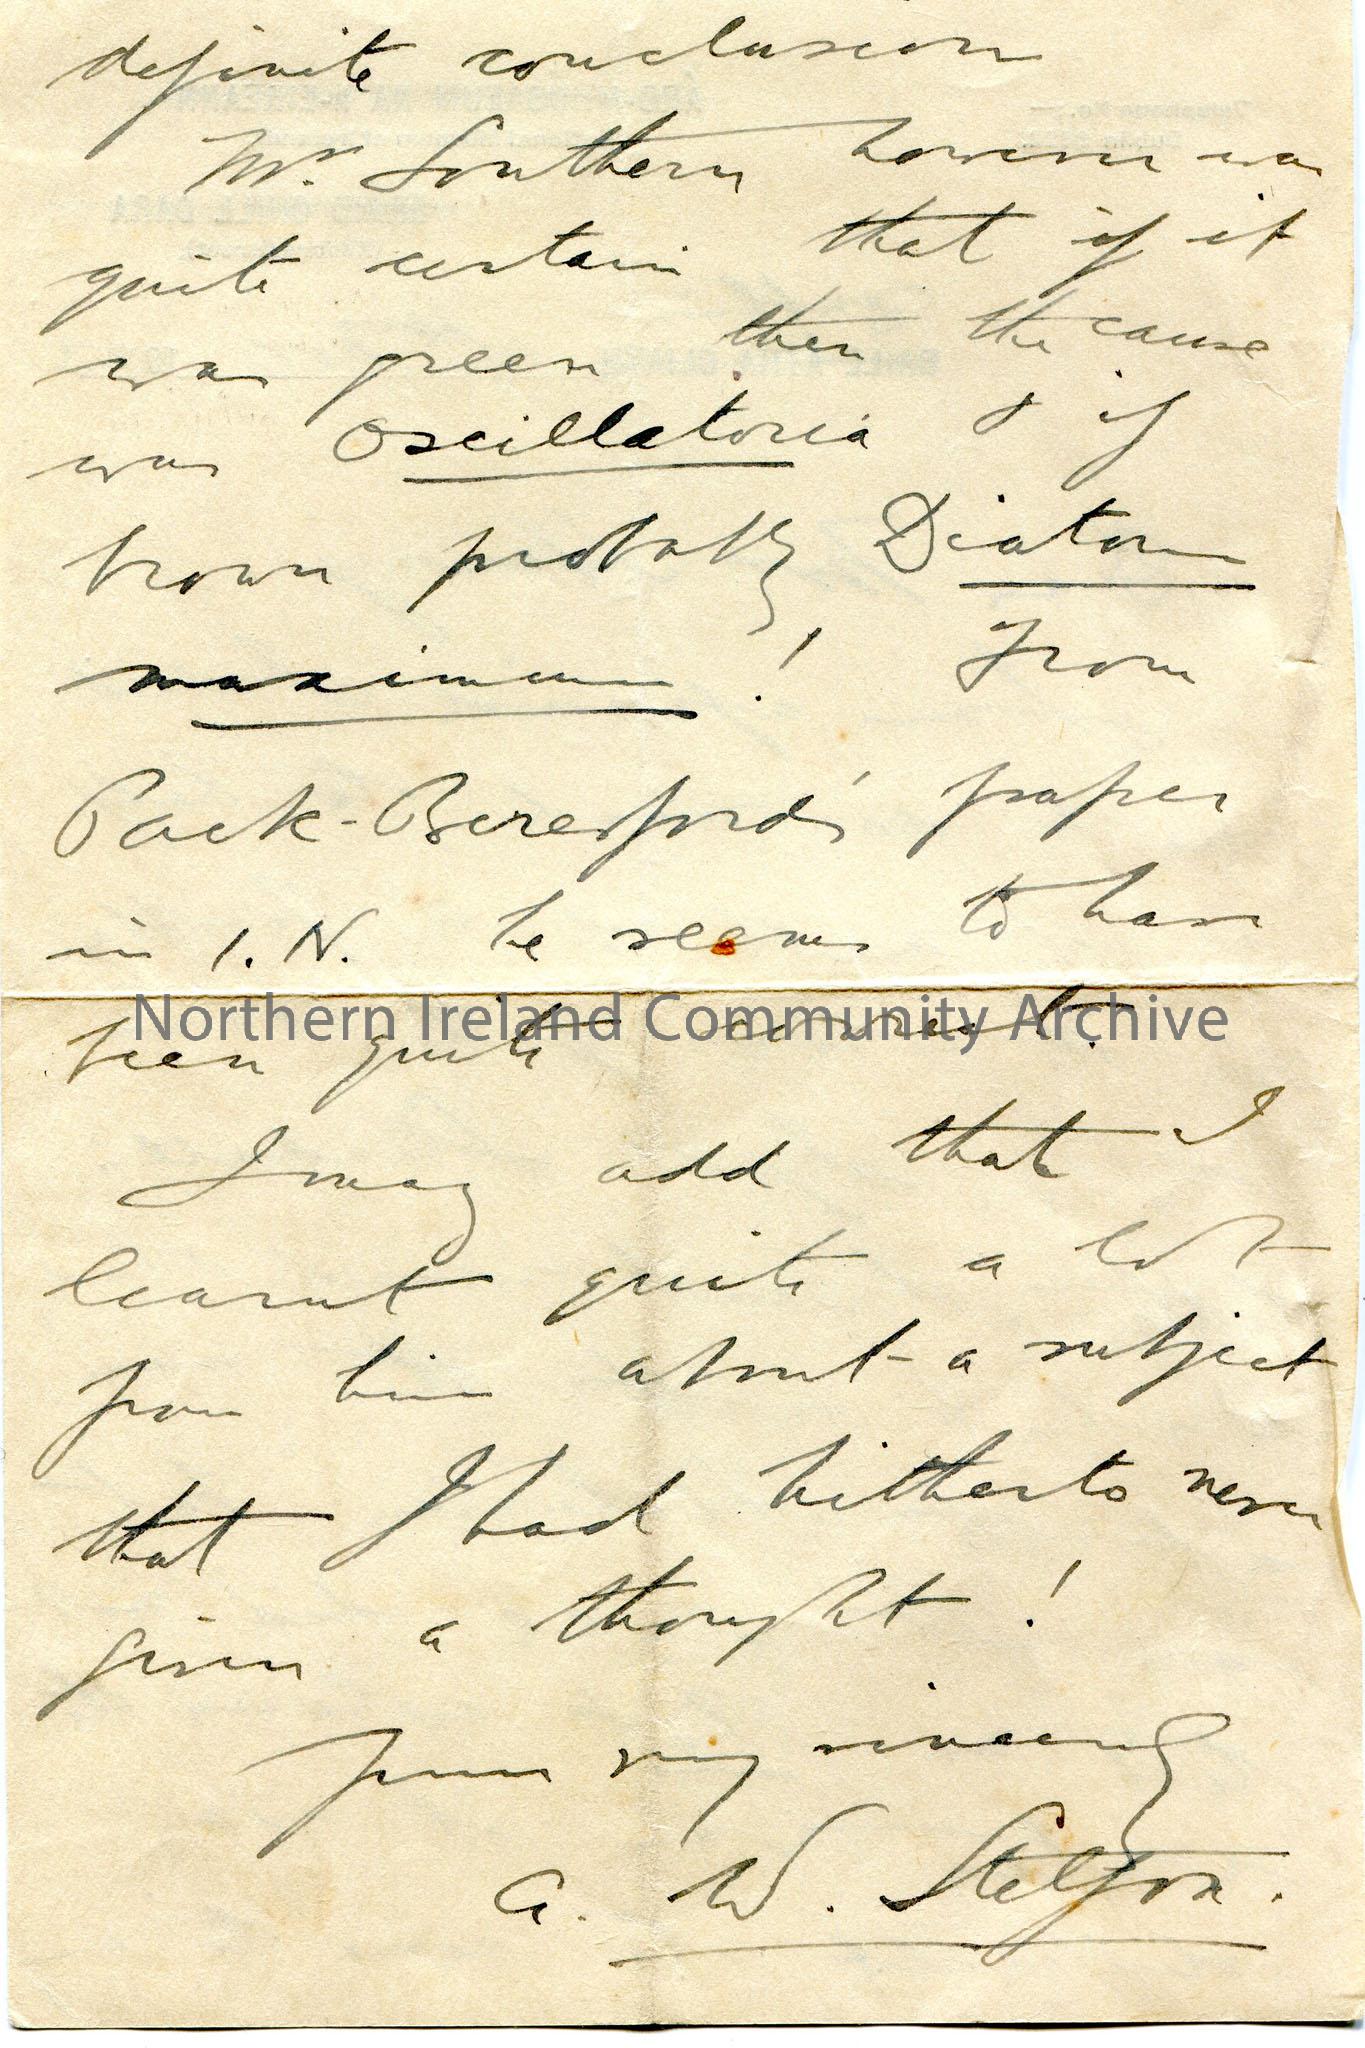 definite conclusion
Mr. Southern however was
quite certain that if it
was green then the cause
was Oscillatoria & if
brown probably Diatom
maximum! From
Pack-Beresford's paper
in I.N. he seems to have
been quite correct.
Northern Ireland Community Archive
I may add that I
learnt quite a lot
from him about a subject
that I had hitherto never
given a thought!
Yours very sincerely
A. W. Stelfox.